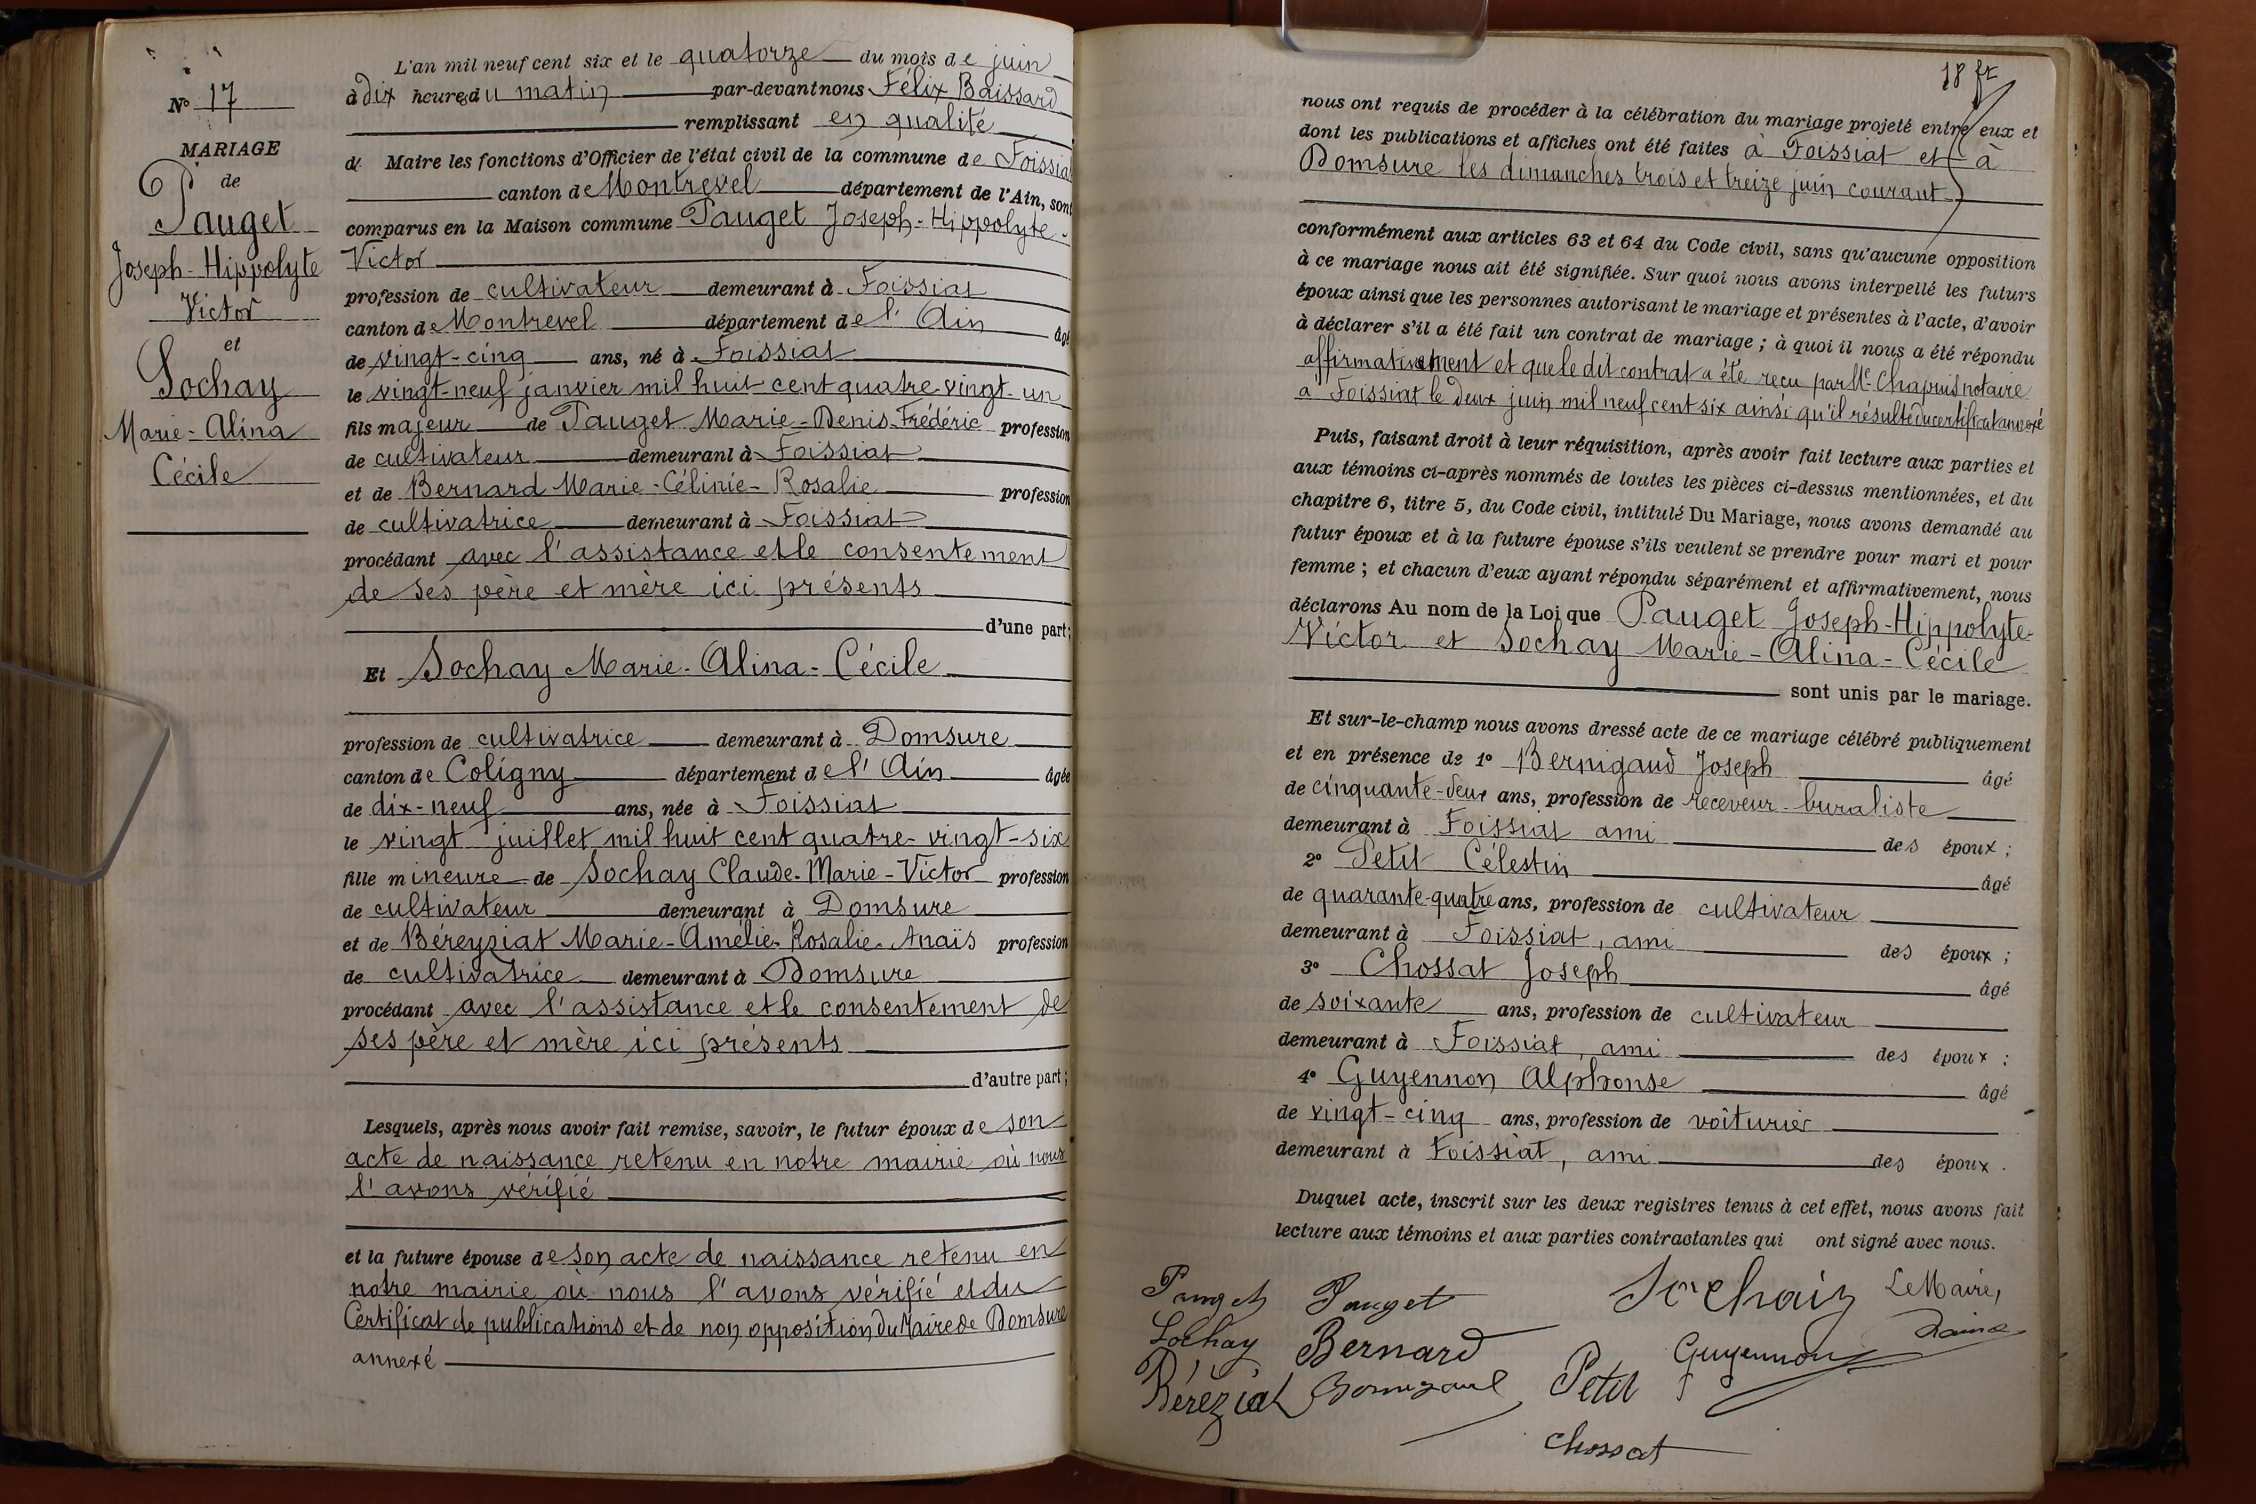 N° 17
MARIAGE
de
Pauget
Joseph-Hippolyte
Victor
et
Sochay
Marie-Alina
Cécile
L'an mil neuf cent six et le quatorze du mois de juin
à dix heures du matin par-devant nous Félix Baissard
remplissant en qualité
de Maire les fonctions d'Officier de l'état civil de la commune de Foissiat
canton de Montrevel département de l'Ain, sont
comparus en la Maison commune Pauget Joseph-Hippolyte-
Victor
profession de cultivateur demeurant à Foissiat
canton de Montrevel département de l'Ain âgé
de vingt-cinq ans, né à Foissiat
le vingt-neuf janvier mil huit cent quatre-vingt-un
fils majeur de Pauget Marie-Denis-Frédéric profession
de cultivateur demeurant à Foissiat
et de Bernard Marie-Célinie-Rosalie profession
de cultivatrice demeurant à Foissiat
procédant avec l'assistance et le consentement
de ses père et mère ici présents
d'une part;
Et Sochay Marie-Alina-Cécile
profession de cultivatrice demeurant à Domsure
canton de Coligny département de l'Ain âgée
de dix-neuf ans, née à Foissiat
le vingt juillet mil huit cent quatre-vingt-six
fille mineure de Sochay Claude-Marie-Victor profession
de cultivateur demeurant à Domsure
et de Béreyziat Marie-Amélie-Rosalie-Anaïs profession
de cultivatrice demeurant à Domsure
procédant avec l'assistance et le consentement de
ses père et mère ici présents
d'autre part;
Lesquels, après nous avoir fait remise, savoir, le futur époux de son
acte de naissance retenu en notre mairie où nous
l'avons vérifié
et la future épouse de son acte de naissance retenu en
notre mairie où nous l'avons vérifié et du
Certificat de publications et de non opposition du Maire de Domsure
annexé
18 ft
nous ont requis de procéder à la célébration du mariage projeté entre eux et
dont les publications et affiches ont été faites à Foissiat et à
Domsure les dimanches trois et treize juin courant
conformément aux articles 63 et 64 du Code civil, sans qu'aucune opposition
à ce mariage nous ait été signifiée. Sur quoi nous avons interpellé les futurs
époux ainsi que les personnes autorisant le mariage et présentes à l'acte, d'avoir
à déclarer s'il a été fait un contrat de mariage ; à quoi il nous a été répondu
affirmativement et que le dit contrat a été reçu par Me Chapuis notaire
à Foissiat le deux juin mil neuf cent six ainsi qu'il résulte du certificat annexé
Puis, faisant droit à leur réquisition, après avoir fait lecture aux parties et
aux témoins ci-après nommés de toutes les pièces ci-dessus mentionnées, et du
chapitre 6, titre 5, du Code civil, intitulé Du Mariage, nous avons demandé au
futur époux et à la future épouse s'ils veulent se prendre pour mari et pour
femme ; et chacun d'eux ayant répondu séparément et affirmativement, nous
déclarons Au nom de la Loi que Pauget Joseph-Hippolyte-
Victor et Sochay Marie-Alina-Cécile
sont unis par le mariage.
Et sur-le-champ nous avons dressé acte de ce mariage célébré publiquement
et en présence de 1° Bernigaud Joseph âgé
de cinquante-deux ans, profession de receveur-buraliste
demeurant à Foissiat ami des époux ;
2° Petit Célestin âgé
de quarante-quatre ans, profession de cultivateur
demeurant à Foissiat, ami des époux ;
3° Chossat Joseph âgé
de soixante ans, profession de cultivateur
demeurant à Foissiat, ami des époux ;
4° Guyennon Alphonse âgé
de vingt-cinq ans, profession de voiturier
demeurant à Foissiat, ami des époux.
Duquel acte, inscrit sur les deux registres tenus à cet effet, nous avons fait
lecture aux témoins et aux parties contractantes qui ont signé avec nous.
Pauget Pauget Sochaiz Le Maire,
Sochay Bernard Guyennon
Bérézial Bernigaud Petit
Chossat